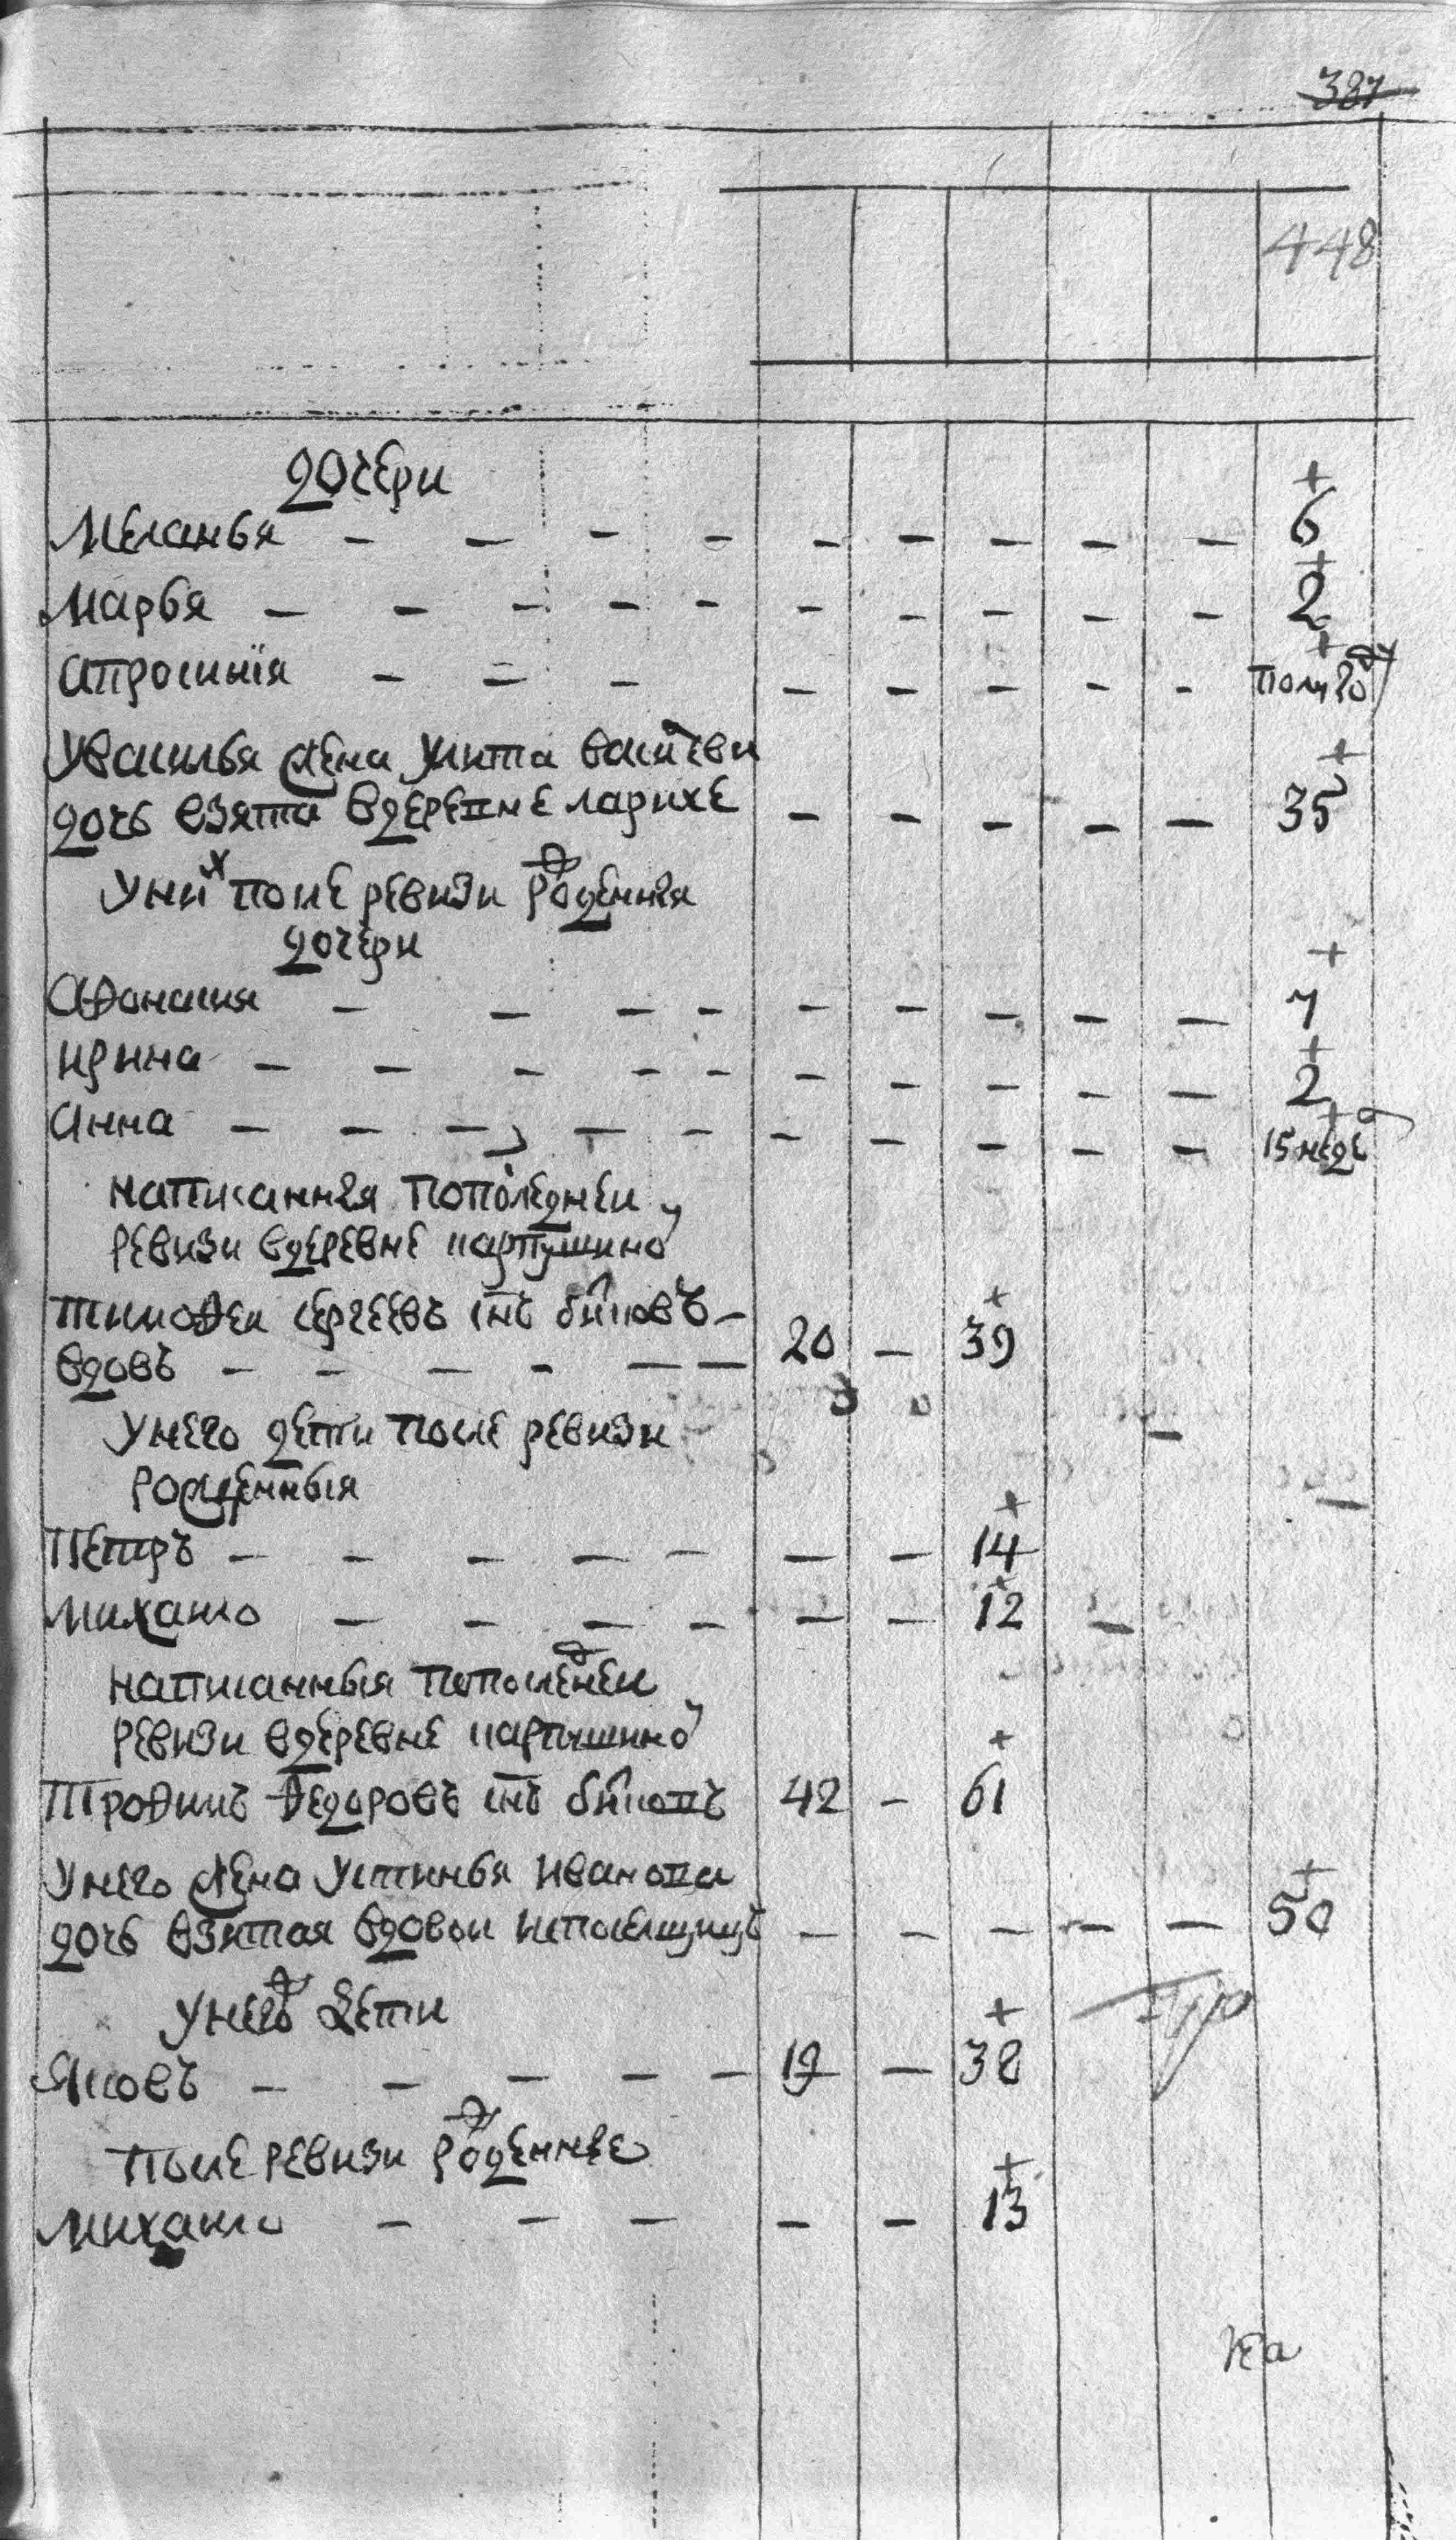 387
448
дочери
Меланья - - - - - - - - - 6
Марья - - - - - - - - - - 2
Апросинїя - - - - - - - - полуго
Увасилья жена улита васильева
дочь взята вдеревне ларихе - - - - - 35
Уних после ревизи рожденныя
дочери
Афонасия - - - - - - - - - 7
ирина - - - - - - - - - - 2
Анна - - - - - - - - - - 15 неде
написанныя попоследней
ревизи вдеревне карпушино
тимофеи сергеевъ снъ быковъ -
вдовъ - - - - - - 20 - 39
Унего дети после ревизи
рожденныя
Петръ - - - - - - - 14
Михаило - - - - - - 12 -
написанныя попоследней
ревизи вдеревне карпушино
Трофимъ Федоровъ снъ быковъ 42 - 61
Унего жена устинья иванова
дочь взятая вдовои - - - - - 50
Унегожъ дети
Яковъ - - - - - 19 - 38
после ревизи рожденные
Михаило - - - - - 13